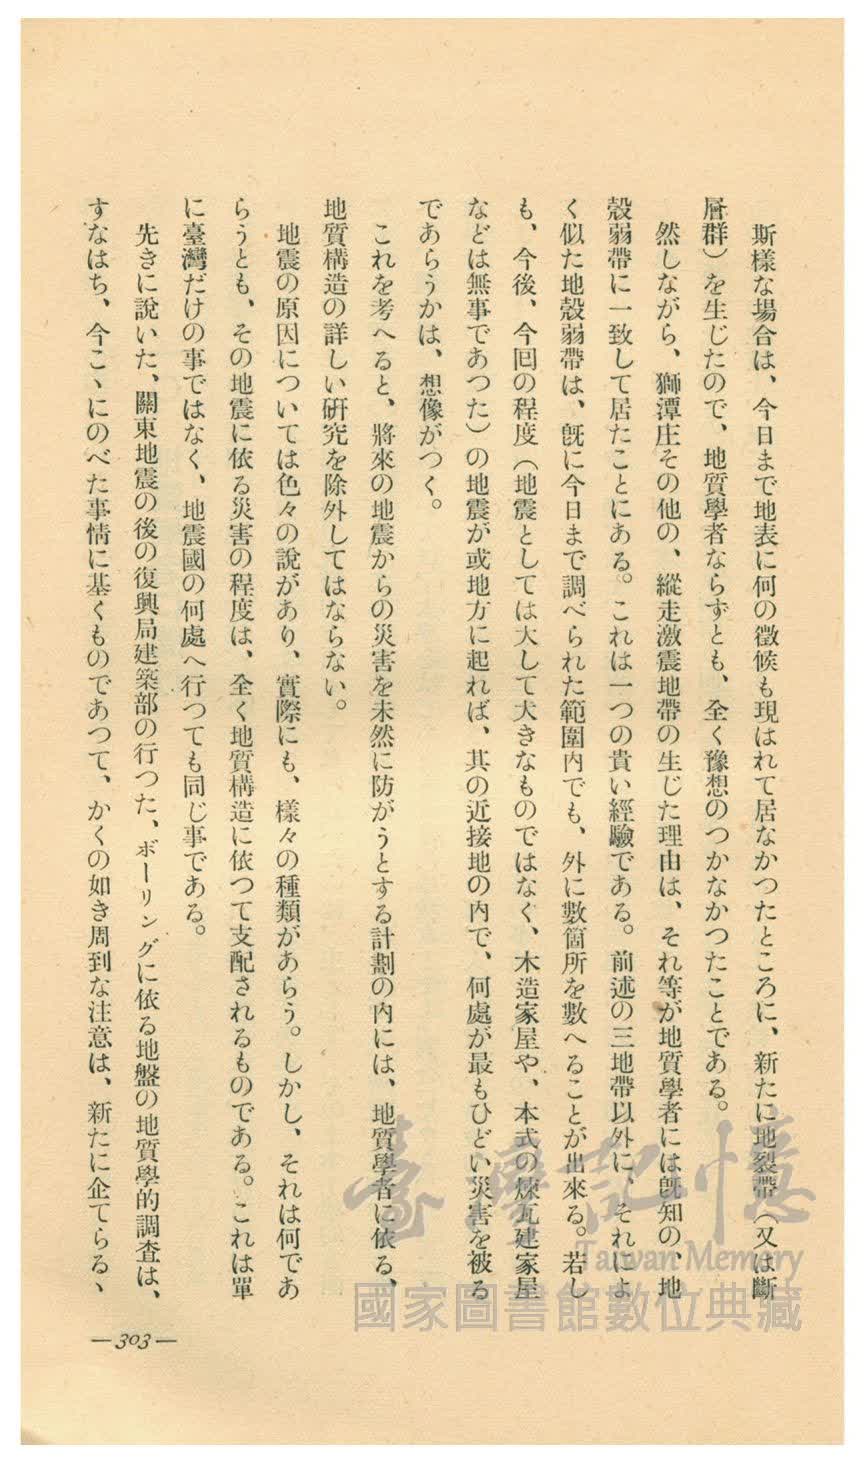 斯樣な場合は、今日まで地表に何の徵候も現はれて居なかつたところに、新たに地裂帶（又は斷
層群）を生じたので、地質學者ならずとも、全く豫想のつかなかつたことである。
然しながら、獅潭庄その他の、縱走激震地帶の生じた理由は、それ等が地質學者には旣知の、地
殼弱帶に一致して居たことにある。これは一つの貴い經驗である。前述の三地帶以外に、それによ
く似た地殼弱帶は、旣に今日まで調べられた範圍內でも、外に數箇所を數へることが出來る。若し
も、今後、今囘の程度（地震としては大して大きなものではなく、木造家屋や、本式の煉瓦建家屋
などは無事であつた）の地震が或地方に起れば、其の近接地の內で、何處が最もひどい災害を被る
であらうかは、想像がつく。
これを考へると、將來の地震からの災害を未然に防がうとする計劃の內には、地質學者に依る、
地質構造の詳しい硏究を除外してはならない。
地震の原因については色々の說があり、實際にも、樣々の種類があらう。しかし、それは何であ
らうとも、その地震に依る災害の程度は、全く地質構造に依つて支配されるものである。これは單
に臺灣だけの事ではなく、地震國の何處へ行つても同じ事である。
先きに說いた、關東地震の後の復興局建築部の行つた、ボーリングに依る地盤の地質學的調査は、
すなはち、今こゝにのべた事情に基くものであつて、かくの如き周到な注意は、新たに企てらるゝ
—303—
臺灣記憶
Taiwan Memory
國家圖書館數位典藏